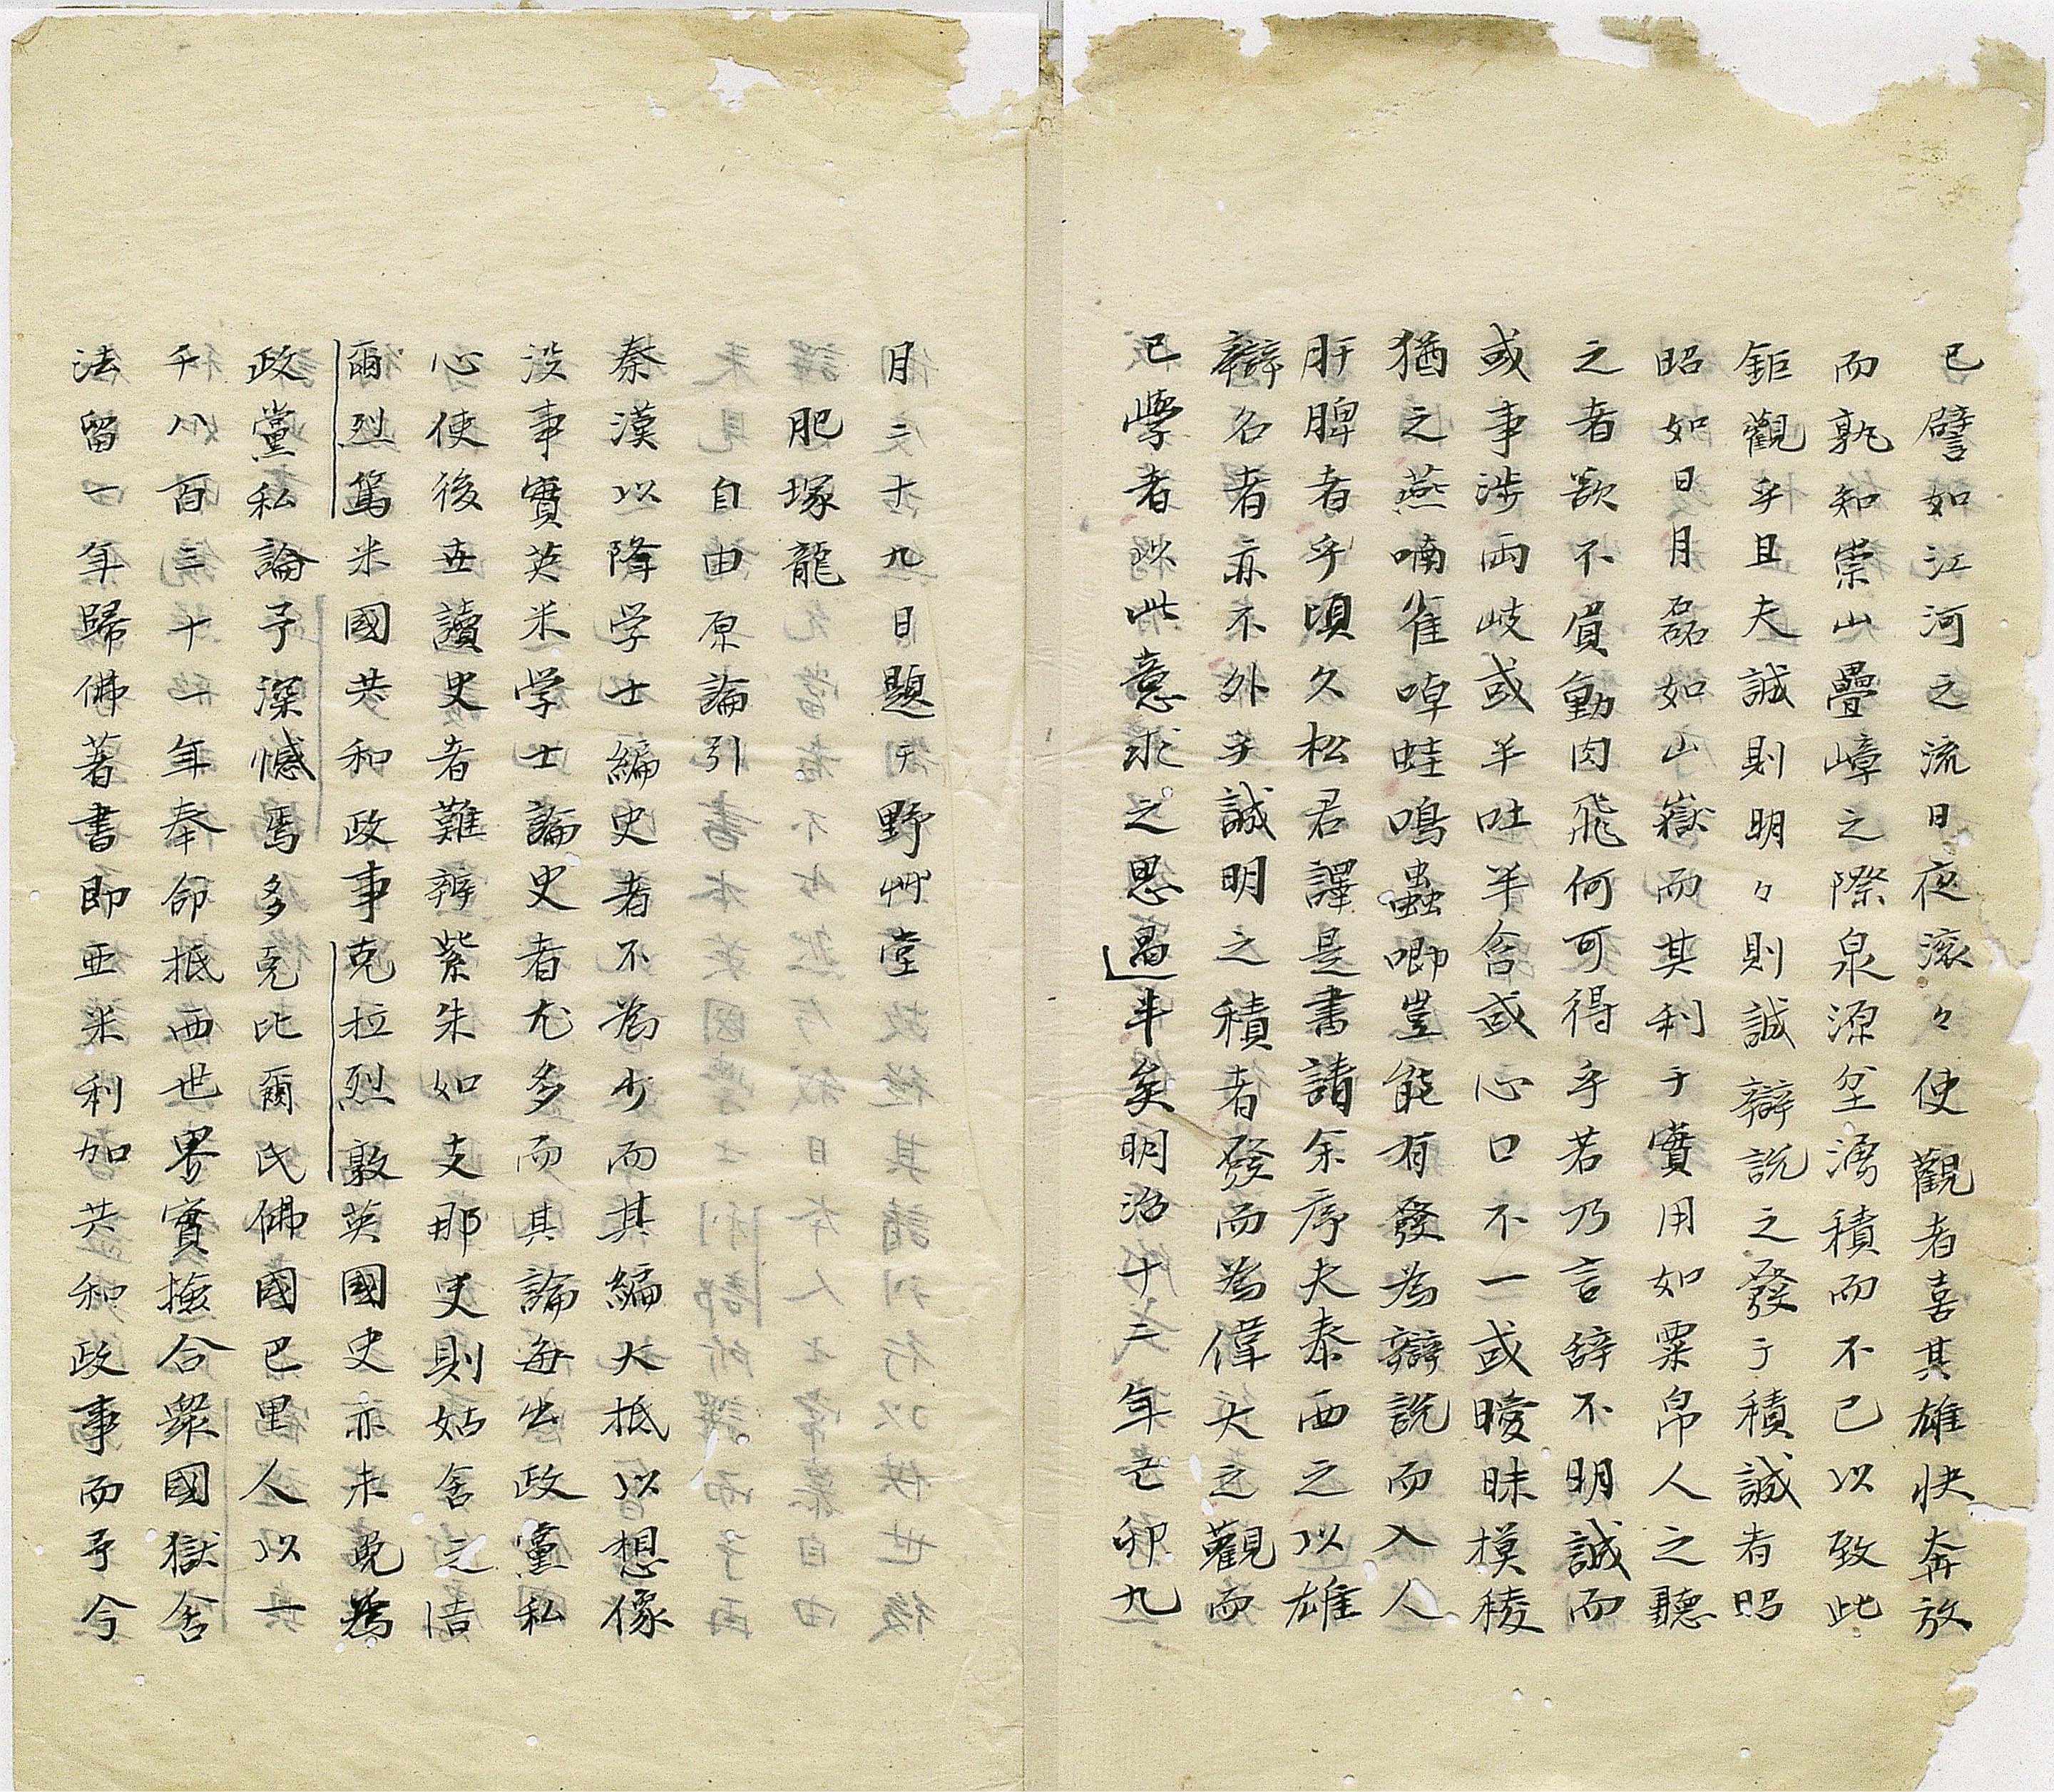 已譬如江河之流日夜滚々使觀者喜其雄快奔放
而孰知崇山疊嶂之際泉源坌湧積而不已以致此
鉅觀乎且夫誠則明々則誠辯説之發于積誠者昭
昭如日月磊如山嶽而其利于實用如粟帛人之聽
之者欲不眉動肉飛何可得乎若乃言辞不明誠而
或事涉両岐或半吐半含或心口不一或曖昧模稜
猶之燕喃雀啅蛙鳴蟲唧豈能有發為辯説而入人
肝脾者乎頃久松君譯是書請余序夫泰西之以雄
辯名者亦不外乎誠明之積者發而為偉大之觀而
已學者以此意求之思過半矣明治十二年己卯九
月三十九日題于野艸堂
肥塚龍
自由原論引
秦漢以降学士編史者不為少而其編大抵以想像
没事實英米学士論史者尤多而其論每出政黨私
心使後世讀史者難辨紫朱如支那史則姑舍之浩
爾烈篤米國共和政事克拉烈敦英國史亦未免為
政黨私論予深憾焉多克比爾氏佛國巴里人以一
千八百三十一年奉命抵西世界實撫合衆國獄舎
法留一年歸佛著書即亜米利加共和政事而予今